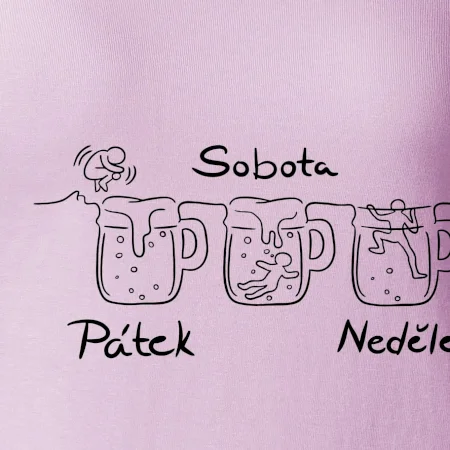 Sobota
Pátek
Neděle